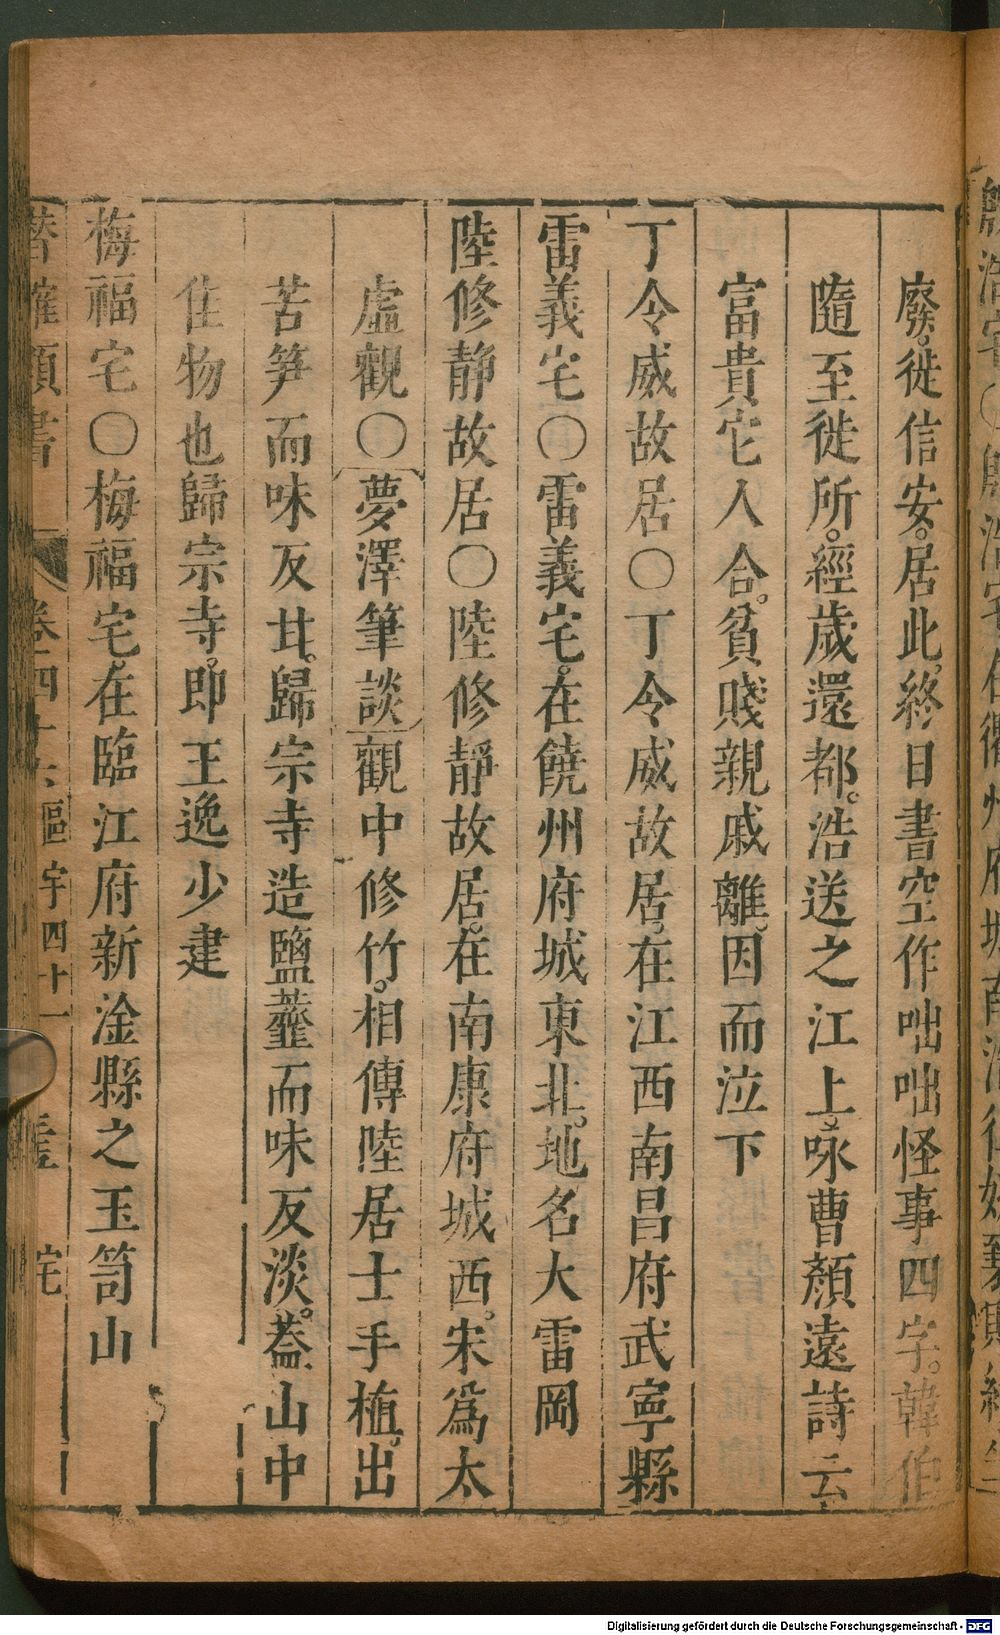 廢。徙信安。居此。終日書空作咄咄怪事四字。韓伯
隨至徙所。經歲還都。浩送之江上。咏曹顏遠詩云。
富貴它人合。貧賤親戚離。因而泣下
丁令威故居〇丁令威故居。在江西南昌府武寧縣
雷義宅〇雷義宅。在饒州府城東北。地名大雷岡
陸修靜故居〇陸修靜故居。在南康府城西。宋爲太
虛觀〇夢澤筆談觀中修竹。相傳陸居士手植。出
苦笋而味反甘。歸宗寺造鹽虀而味反淡。葢山中
佳物也歸宗寺。即王逸少建
梅福宅〇梅福宅。在臨江府新淦縣之玉笥山
卷四十六 區宇四十一 宅
Digitalisierung gefördert durch die Deutsche Forschungsgemeinschaft - DFG